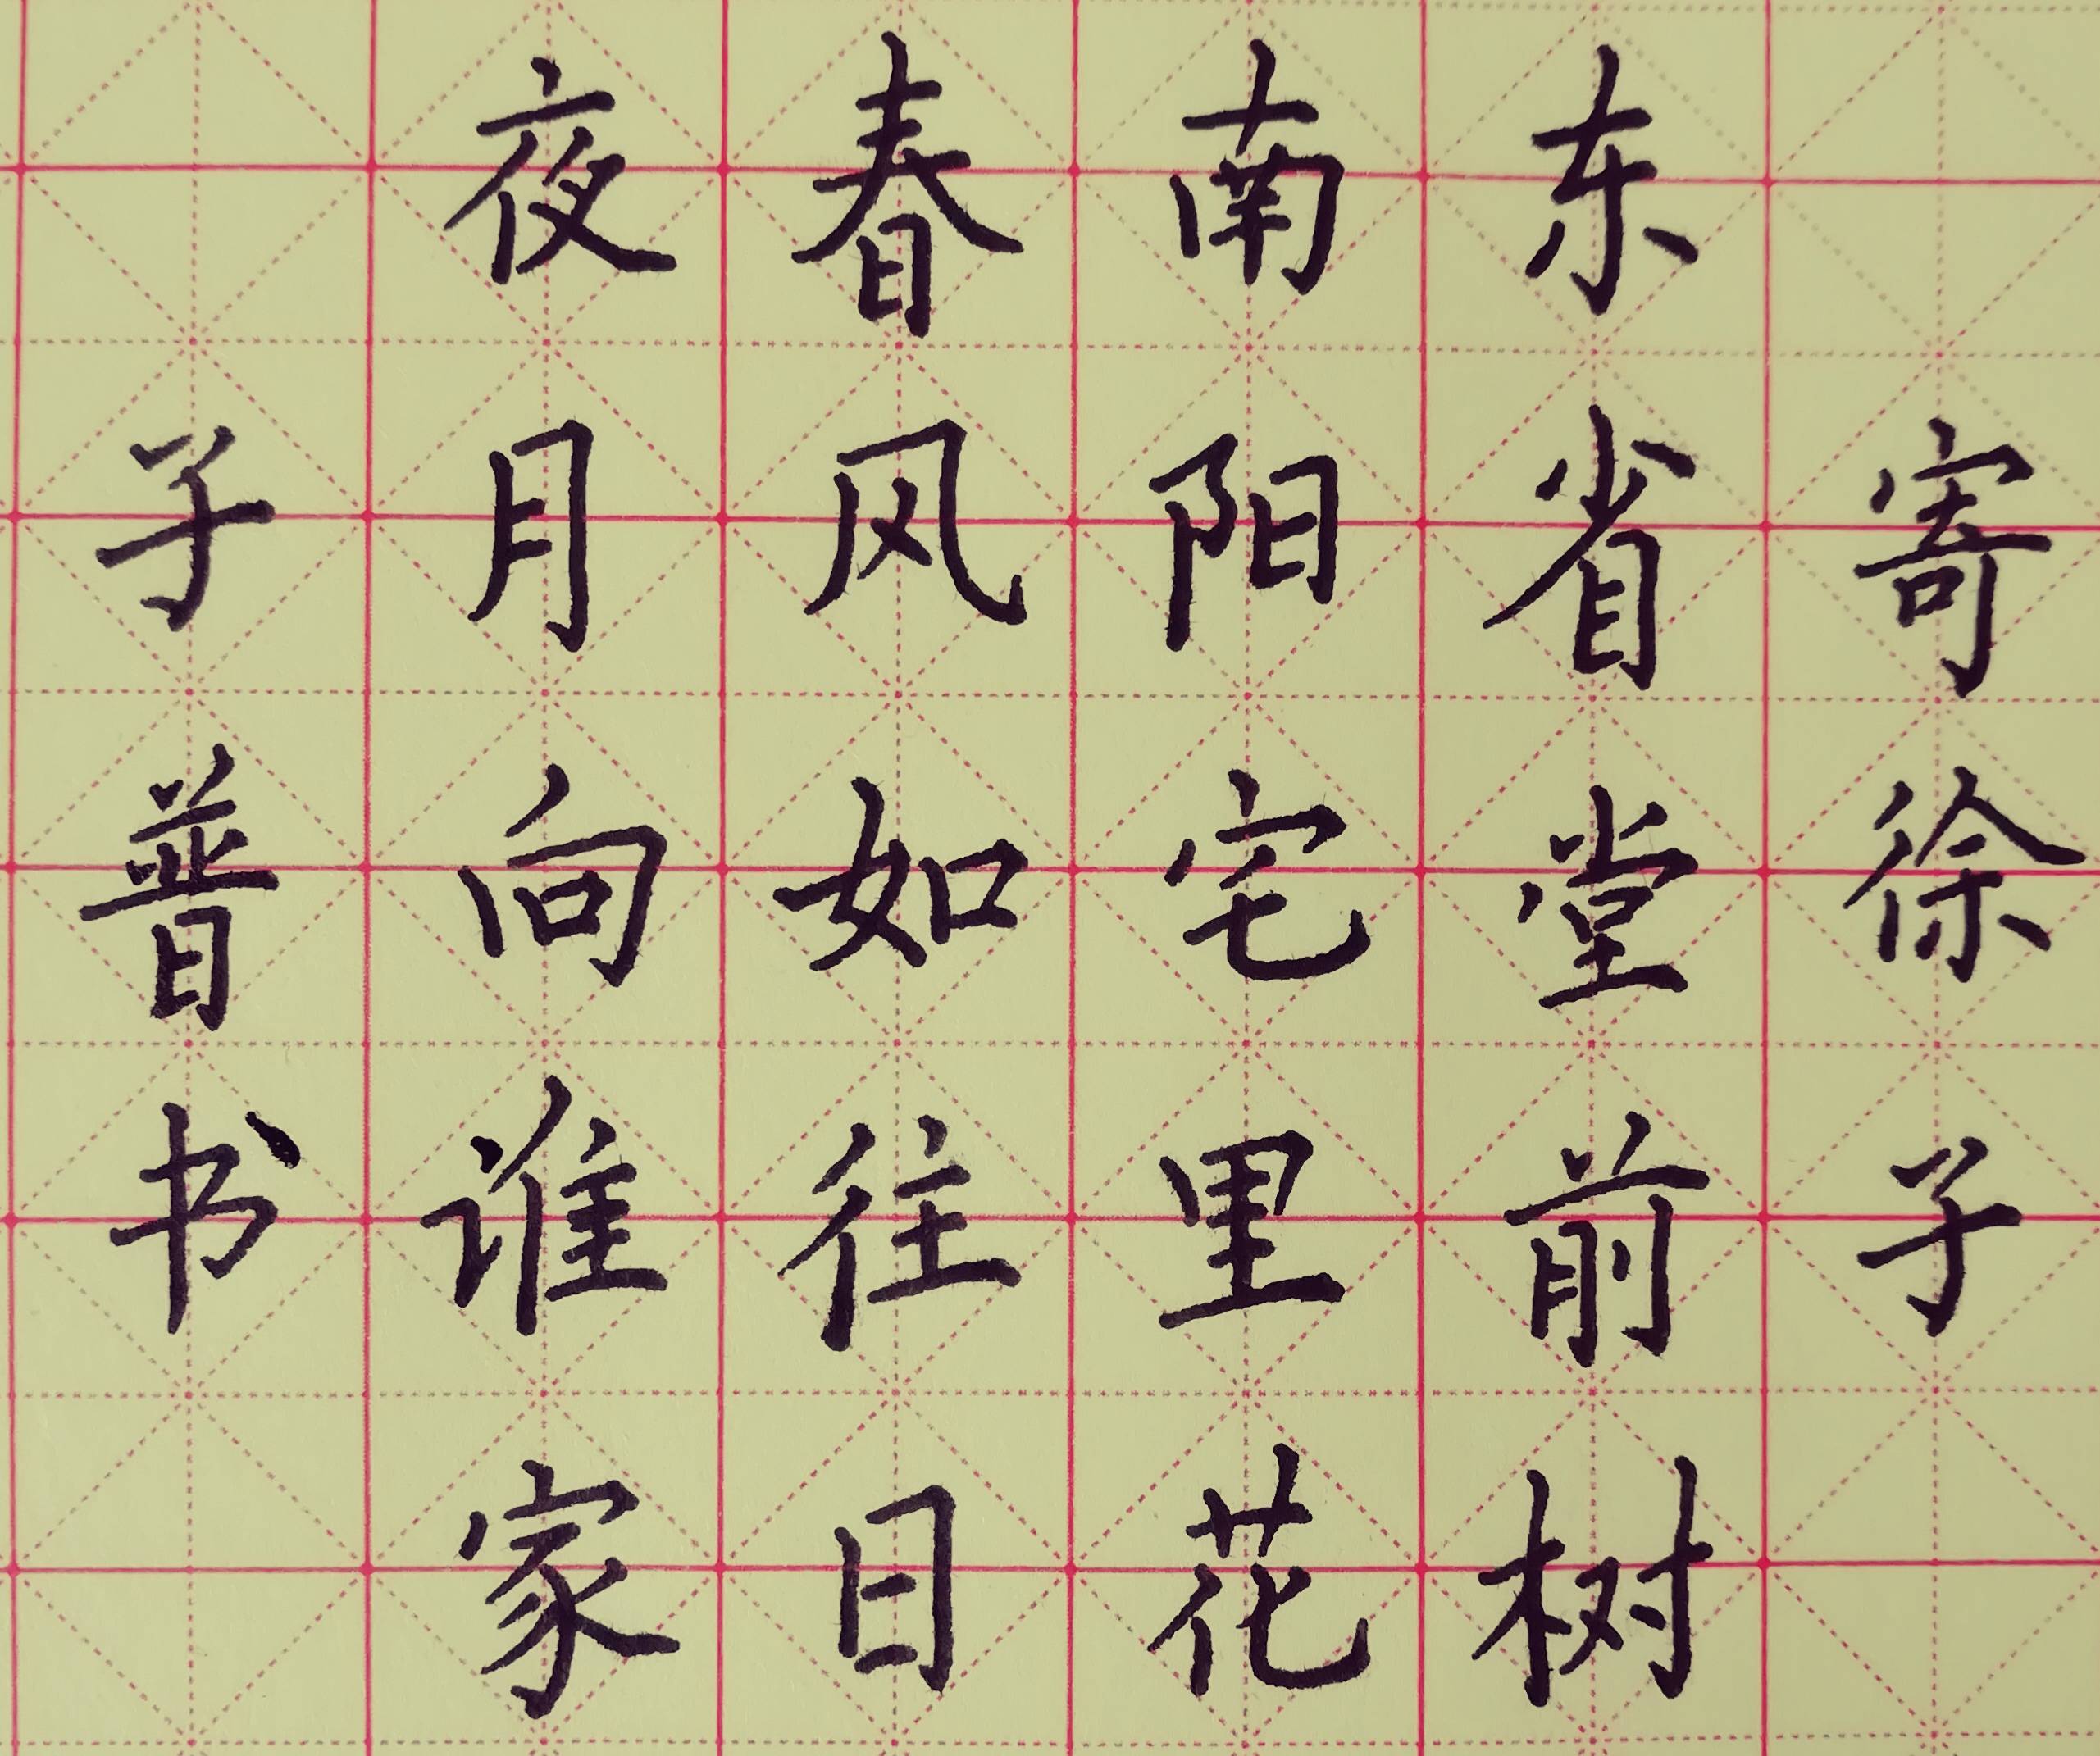 寄徐子
东省堂前树
南阳宅里花
春风如往日
夜月向谁家
子普书